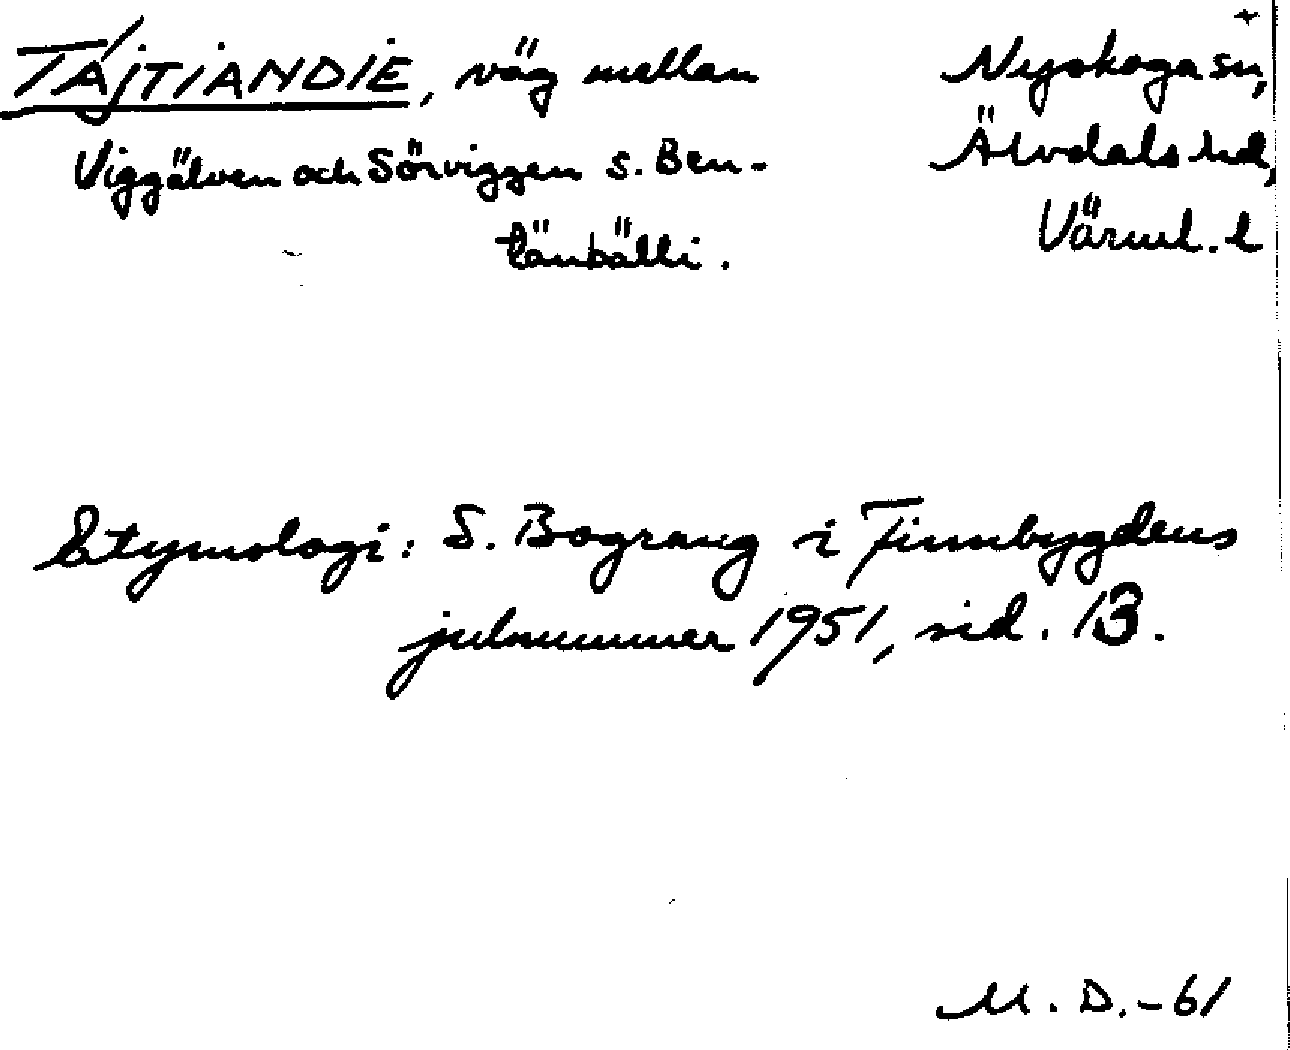 TÁJTIANDIE, väg mellan
Viggälven och Sörviggen s. Ben-
tänbälli.
Nyskoga sn,
Älvdals hd,
Värml. l
Etymologi: S. Bograng i Finnbygdens
julnummer 1951, sid. 13.
M. D. - 61